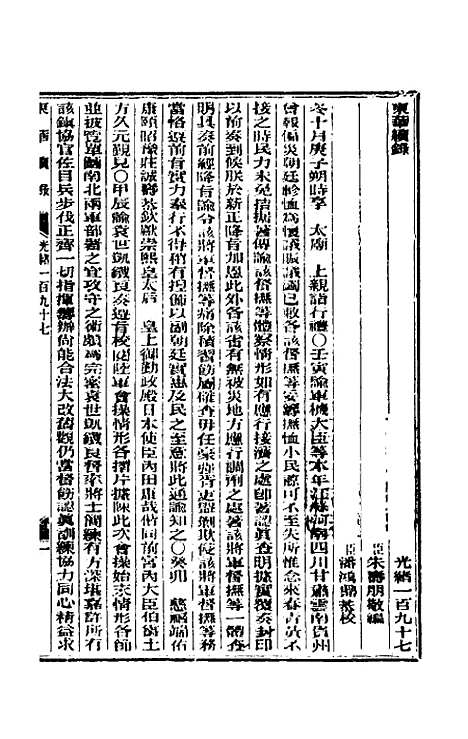 東華續錄
光緒一百九十七
臣朱壽朋敬編
臣潘鴻鼎恭校
冬十月庚子朔時享　太廟　上親詣行禮〇壬寅諭軍機大臣等本年江蘇河南四川甘肅雲南貴州
曾報偏災朝廷軫恤爲懷議賑議蠲已敕各該督撫等妥籌撫恤小民諒可不至失所惟念來春青黃不
接之時民力未免拮据著傳諭該將軍督撫等體察情形如有應行接濟之處卽著認眞查明據實覆奏封印
以前奏到候朕於新正降旨加恩此外各該省有無被災地方應行調劑之處著該將軍督撫等一體查
明具奏前經降旨該將軍督撫等痛除積習飭屬確查毋任豪強胥吏盤剝欺侵該將軍督撫等務
當恪遵前旨實力奉行不得稍有捏飾以副朝廷實惠及民之至意將此通諭知之〇癸卯　慈禧端佑
康頤昭豫莊誠壽恭欽獻崇熙皇太后　皇上御勤政殿日本使臣內田康哉偕同前宮內大臣伯爵土
方久元覲見〇甲辰諭袁世凱鐵良奏遵旨校閱陸軍會操情形各摺片據陳此次會操始末情形各師
並披覽單圖南北兩軍部署之宜攻守之術頗爲完密袁世凱鐵良督率將士簡練有方深堪嘉許所有
該鎭協官佐目兵步伐正齊一切指揮籌辦尚能合法大改舊觀仍當督飭認眞訓練協力同心精益求
東華續錄　光緒一百九十七